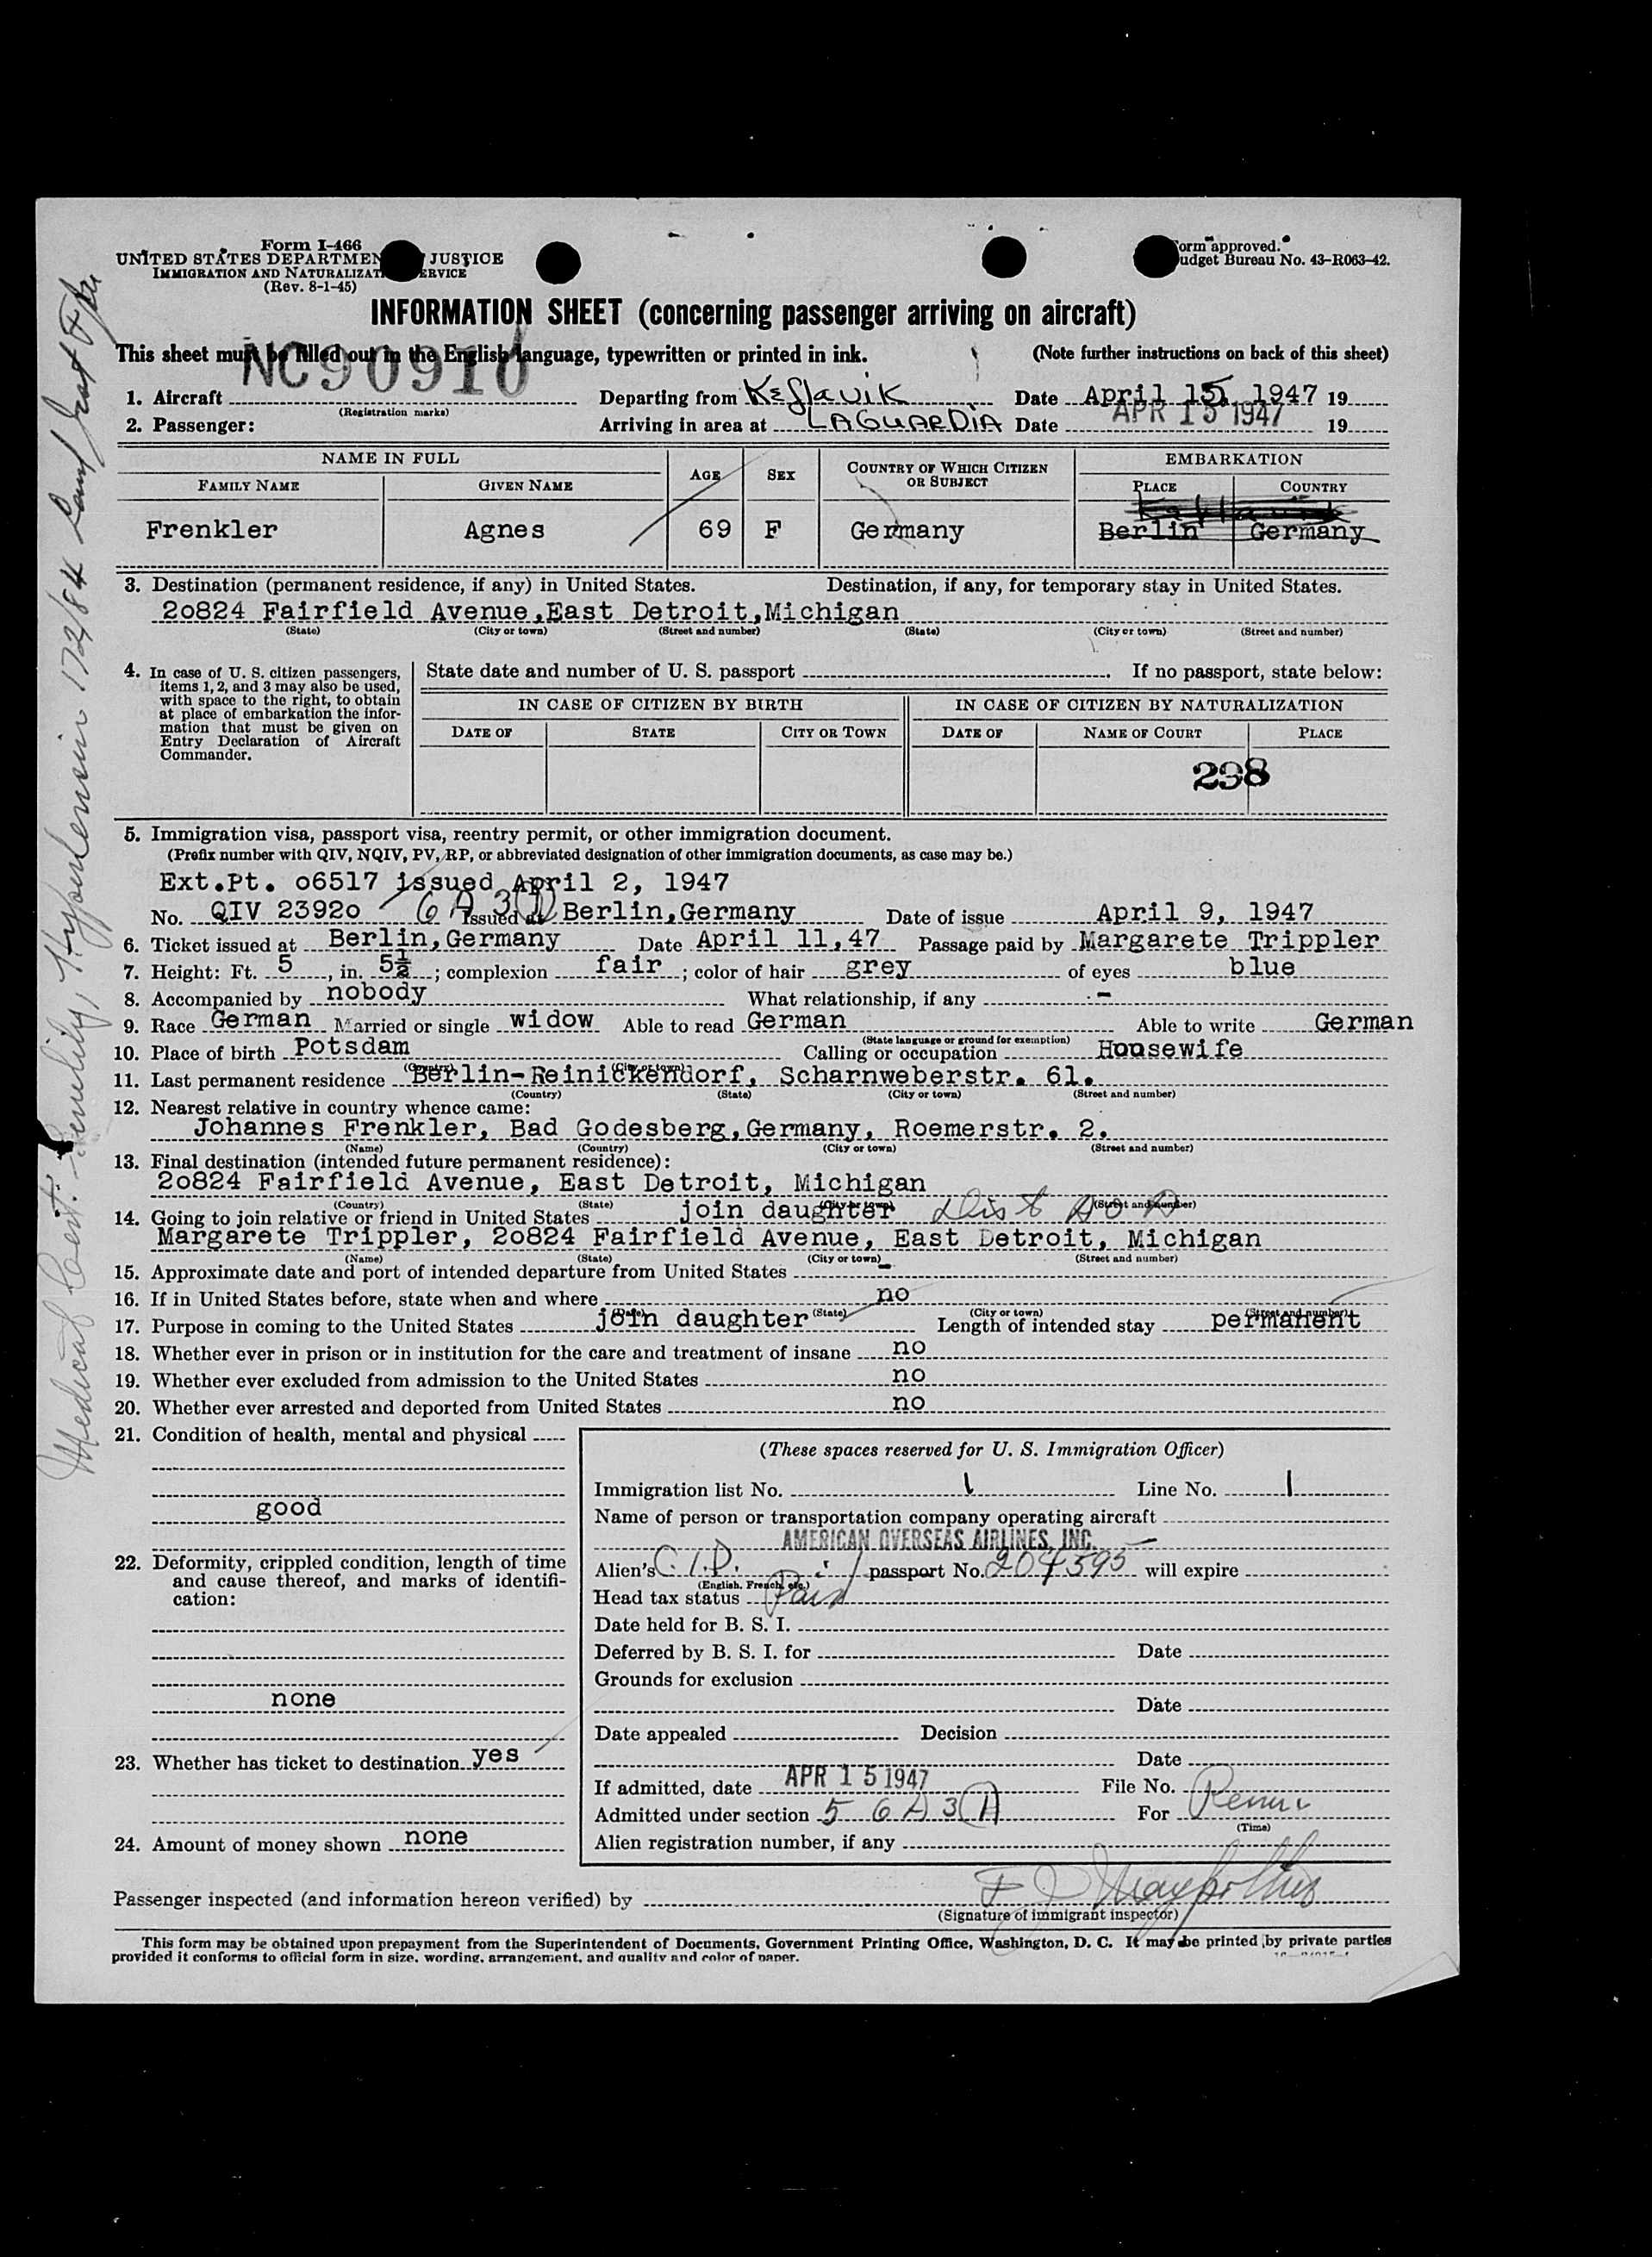 Form I-466
UNITED STATES DEPARTMENT JUSTICE
IMMIGRATION AND NATURALIZAT ERVICE
(Rev. 8-1-45)
orm approved.
udget Bureau No. 43-R063-42.
INFORMATION SHEET (concerning passenger arriving on aircraft)
This sheet must be filled out in the English language, typewritten or printed in ink. (Note further instructions on back of this sheet)
NC90910
1. Aircraft Departing from Keflavik Date April 15, 1947 19
(Registration marks)
2. Passenger: Arriving in area at LAGUARDIA Date APR 15 1947 19
NAME IN FULL AGE SEX COUNTRY OF WHICH CITIZEN OR SUBJECT EMBARKATION
FAMILY NAME GIVEN NAME PLACE COUNTRY
Frenkler Agnes 69 F Germany Berlin Germany
3. Destination (permanent residence, if any) in United States. Destination, if any, for temporary stay in United States.
20824 Fairfield Avenue, East Detroit, Michigan
(State) (City or town) (Street and number) (State) (City or town) (Street and number)
4. In case of U. S. citizen passengers, items 1, 2, and 3 may also be used, with space to the right, to obtain at place of embarkation the information that must be given on Entry Declaration of Aircraft Commander.
State date and number of U. S. passport If no passport, state below:
IN CASE OF CITIZEN BY BIRTH IN CASE OF CITIZEN BY NATURALIZATION
DATE OF STATE CITY OR TOWN DATE OF NAME OF COURT PLACE
298
5. Immigration visa, passport visa, reentry permit, or other immigration document.
(Prefix number with QIV, NQIV, PV, RP, or abbreviated designation of other immigration documents, as case may be.)
Ext.Pt. o6517 issued April 2, 1947
No. QIV 2392o 6 A 3(1) Issued at Berlin, Germany Date of issue April 9, 1947
6. Ticket issued at Berlin, Germany Date April 11, 47 Passage paid by Margarete Trippler
7. Height: Ft. 5, in. 5½; complexion fair; color of hair grey of eyes blue
8. Accompanied by nobody What relationship, if any -
9. Race German Married or single widow Able to read German Able to write German
(State language or ground for exemption)
10. Place of birth Potsdam Calling or occupation Housewife
(Country) (City or town)
11. Last permanent residence Berlin-Reinickendorf, Scharnweberstr. 61.
(Country) (State) (City or town) (Street and number)
12. Nearest relative in country whence came:
Johannes Frenkler, Bad Godesberg, Germany, Roemerstr. 2.
(Name) (Country) (City or town) (Street and number)
13. Final destination (intended future permanent residence):
20824 Fairfield Avenue, East Detroit, Michigan
(Country) (State) (City or town) (Street and number)
14. Going to join relative or friend in United States join daughter
Margarete Trippler, 20824 Fairfield Avenue, East Detroit, Michigan
(Name) (State) (City or town) (Street and number)
15. Approximate date and port of intended departure from United States -
16. If in United States before, state when and where no
(Date) (State) (City or town) (Street and number)
17. Purpose in coming to the United States join daughter Length of intended stay permanent
18. Whether ever in prison or in institution for the care and treatment of insane no
19. Whether ever excluded from admission to the United States no
20. Whether ever arrested and deported from United States no
21. Condition of health, mental and physical
good
22. Deformity, crippled condition, length of time and cause thereof, and marks of identification:
none
23. Whether has ticket to destination yes
24. Amount of money shown none
(These spaces reserved for U. S. Immigration Officer)
Immigration list No. 1 Line No. 1
Name of person or transportation company operating aircraft
AMERICAN OVERSEAS AIRLINES, INC.
Alien's C.I.D. passport No. 204595 will expire
(English, French, etc.)
Head tax status Paid
Date held for B. S. I.
Deferred by B. S. I. for Date
Grounds for exclusion
Date
Date appealed Decision
Date
If admitted, date APR 15 1947 File No.
Admitted under section 5 6 A 3(1) For
(Time)
Alien registration number, if any
Passenger inspected (and information hereon verified) by
(Signature of immigrant inspector)
This form may be obtained upon prepayment from the Superintendent of Documents, Government Printing Office, Washington, D. C. It may be printed by private parties
provided it conforms to official form in size, wording, arrangement, and quality and color of paper.
Medical Cert: Senility, Hypertension 172/84